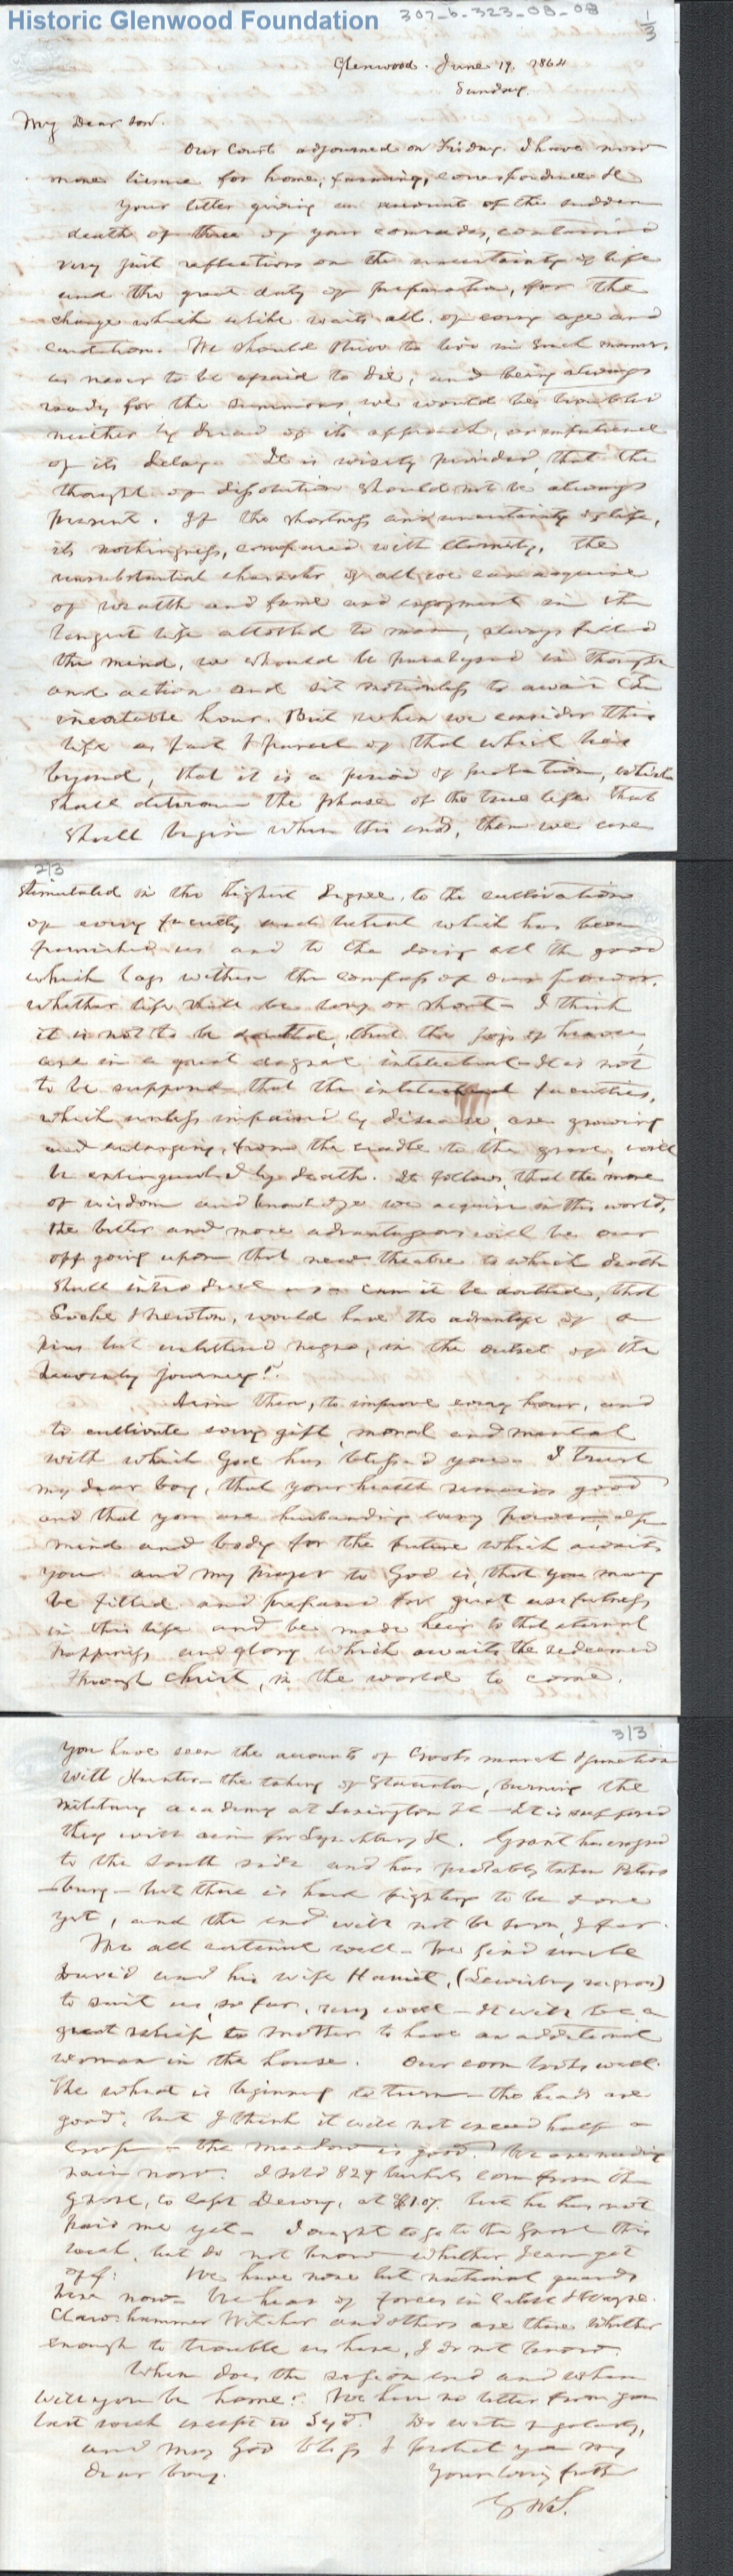 Historic Glenwood Foundation
307-b-323-08-08
1/3
Glenwood. June 19, 1864
Sunday.
My Dear Son.
Our Court adjourned on Friday. I have now
more leisure for home, farming, correspondence &c
Your letter giving an account of the sudden
death of three of your comrades, contained
very just reflections on the uncertainty of life
and the great duty of preparation, for the
change which alike waits all of every age and
condition. We should strive to live in such manner,
as never to be afraid to die, and being always
ready for the summons, we would be troubled
neither by dread of its approach, or impatience
of its delay. It is wisely provided, that the
thought of dissolution should not be always
present. If the shortness and uncertainty of life,
its nothingness, compared with eternity, the
unsubstantial character of all we can acquire
of wealth and fame and enjoyment in the
longest life allotted to man, always filled
the mind, we should be paralyzed in thought
and action and sit motionless to await the
inevitable hour. But when we consider this
life as part & parcel of that which lies
beyond, that it is a period of probation, which
shall determine the phase of the true life that
shall begin when this ends, then we are
2/3
stimulated in the highest degree, to the cultivation
of every faculty and talent which has been
furnished us and to the doing all the good
which lays within the compass of our power,
whether life shall be long or short - I think
it is not to be doubted, that the joys of heaven,
are in a great degree intellectual - It is not
to be supposed that the intellectual faculties,
which unless impaired by disease, are growing
and enlarging, from the cradle to the grave, will
be extinguished by death. It follows, that the more
of wisdom and knowledge we acquire in this world,
the better and more advantageous will be our
off going upon that new theatre to which death
shall introduce us - can it be doubted, that
Locke & Newton, would have the advantage of a
pious but unlettered negro, in the outset of the
heavenly journey?
Aim then, to improve every hour, and
to cultivate every gift moral and mental
with which God has blessed you. I trust
my dear boy, that your health remains good
and that you are husbanding every power of
mind and body for the future which awaits
you and my prayer to God is, that you may
be fitted and prepared for great usefulness
in this life and be made heir to that eternal
happiness and glory which awaits the redeemed
through Christ, in the world to come.
3/3
You have seen the accounts of Crooks march & junction
with Hunter - the taking of Staunton, burning the
military academy at Lexington &c - It is supposed
they will aim for Lynchburg &c. Grant has crossed
to the South side and has probably taken Peters
-burg - but there is hard fighting to be done
yet, and the end will not be soon, I fear.
We all continue well - We find uncle
David and his wife Harriet, (Lewisburg negroes)
to suit us, so far, very well - It will be a
great relief to mother to have an additional
woman in the house. Our corn looks well.
The wheat is beginning to turn - the heads are
good, but I think it will not exceed half a
crop - the meadow is good. We are needing
rain now. I sold 829 bushels corn from the
Grove, to Capt Dewey, at $1.07. but he has not
paid me yet - I ought to go to the Grove this
week, but do not know whether I can get
off. We have none but national guards
here now - We hear of forces in Cabell & Wayne.
Clawhammer Witcher and others are there whether
enough to trouble us here, I do not know.
When does the session end and when
will you be home? We have no letter from you
last week except to Syd. Do write regularly,
and may God bless & protect you my
dear boy. Your loving father